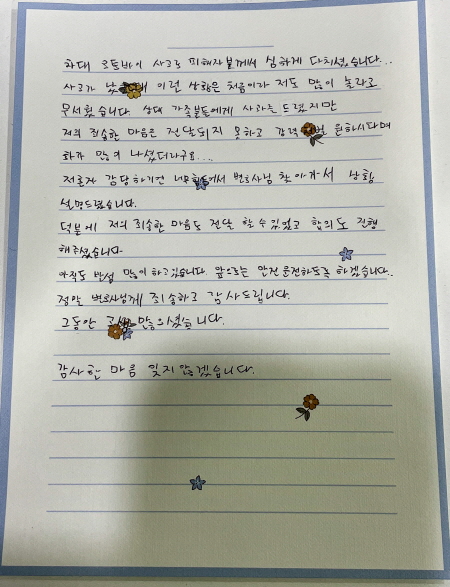 차대 오토바이 사고로 피해자분께서 심하게 다치셨습니다...
사고가 났을때 이런 상황은 처음이라 저도 많이 놀라고
무서웠습니다. 상대 가족분들에게 사과는 드렸지만
저의 죄송한 마음은 전달되지 못하고 강력 처벌 원하시다며
화가 많이 나셨더라구요....
저혼자 감당하기엔 너무 힘들어서 변호사님 찾아가서 상황
설명드렸습니다.
덕분에 저의 죄송한 마음도 전달 할 수 있었고 합의도 진행
해주셨습니다.
아직도 반성 많이 하고있습니다. 앞으로는 안전 운전하도록 하겠습니다..
정말 변호사님께 죄송하고 감사드립니다.
그동안 고생 많으셨습니다.
감사한 마음 잊지 않겠습니다.